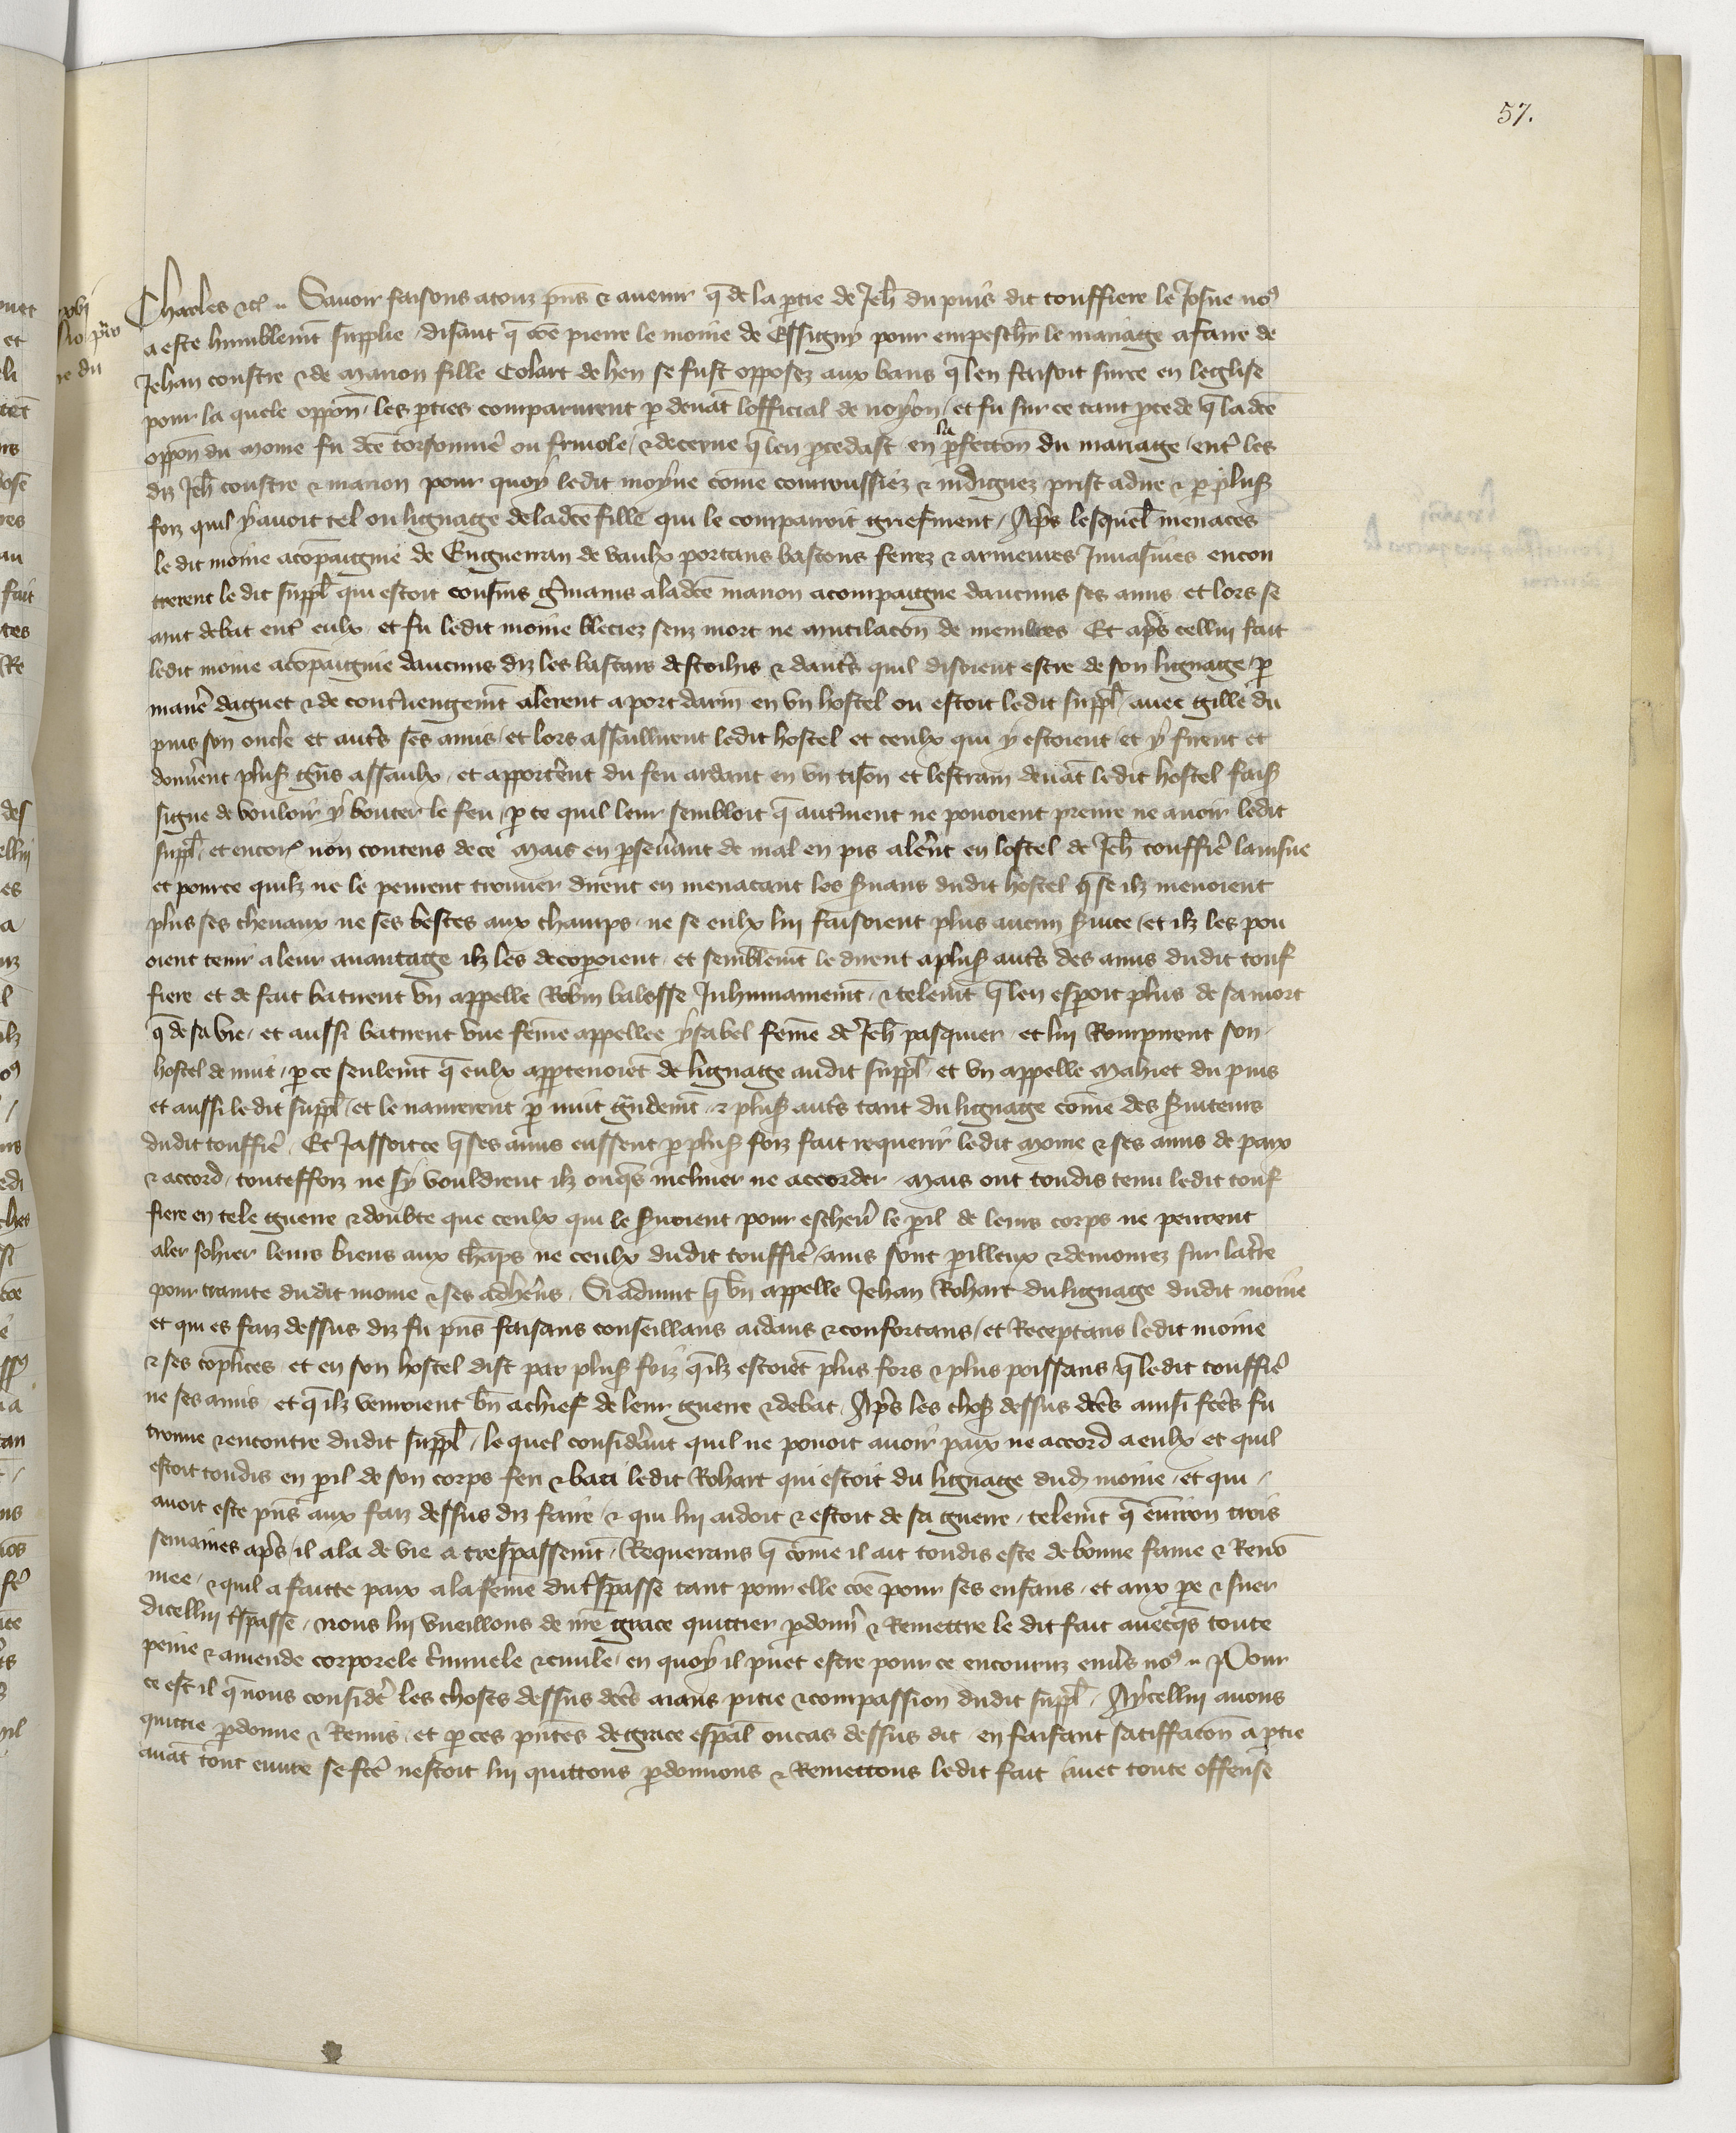 57.
Charles etc. Savoir faisons a touz pns et avenir q de la partie de Jeh du puis dit touffiere le Josne nos
a este humblemt supplie disant q come pierre le moine de Essigny pour empeschr le mariage a faire de
Jehan coustre et de marion fille Colart de hen se fust opposez aux bans q len faisoit faire en leglise
pour la quele oppon les pties comparurent p devat lofficial de noyon et fu sur ce tant pcede q ladce
oppon du moine fu dce torsonnie ou frivole et decerne q len pcedast en la pfection du mariage entr les
diz Jeh coustre et marion pour quoy ledit moyne come courroussiez et indignez prist a dire et p plus
foiz quil y avoit tel ou lignage de ladce fille qui le comparroit griefment Aprs lesquel menaces
le dit moine acopaignie de Enguerran de vaulx portans bastons ferrez et armeures Invasives encon
trerent le dit suppl qui estoit cousins gmains a ladce marion acompaigne daucuns ses amis et lors se
mut debat entr eulx et fu ledit moine bleciez senz mort ne mutilacon de membres Et aprs cellui fait
ledit moine acopaignie daucuns diz les bastars destoilus et dautrs quil disoient estre de son lignage p
maner daguet et de contrvengemt alerent a port darm en un hostel ou estoit ledit suppl avec gille du
puis son oncle et autrs ses amis et lors assaillirent ledit hostel et ceulx qui y estoient et y firent et
donnerent plus gns assaulx et apporterent du feu ardant en un tison et lestrain devat ledit hostel fais
signe de vouloir y bouter le feu p ce quil leur sembloit q autrment ne povoient prenre ne avoir ledit
suppl et encores non contens de ce Mais en psevrant de mal en pis alerent en lostel de Jeh touffier lainsne
et pour ce quilz ne le peurent trouver dirent en menacant les svans dudit hostel q se ilz menoient
plus ses chevaux ne ses bestes aux champs ne se eulx lui faisoient plus aucun svice et ilz les pou
oient tenir a leur avantage ilz les decoperoient et semblemt le dirent a plus autrs des amis dudit touf
fiere et de fait batirent un appelle Robin balesse Inhumainemt et telemt q len esperoit plus de sa mort
q de sa vie et aussi batirent une feme appellee ysabel feme de Jeh pasquier et lui Rompirent son
hostel de nuit p ce seulemt q eulx appartenoiet de lignage audit suppl et un appelle Mahiet du puis
et aussi ledit suppl et le navrerent p nuit grandemt et plus autrs tant du lignage come des sviteurs
dudit touffier Et Jassoit ce q ses amis eussent p plus foiz fait requerir ledit moine et ses amis de paix
et accord toutesfoiz ne sy vouldrent ilz onqs incliner ne accorder Mais ont toudis tenu ledit touf
fiere en tele guerre et doubte que ceulx qui le svoient pour eschever le pil de leurs corps ne peurent
aler sohier leurs biens aux chaps ne ceulx dudit touffier ains sont pilleux et demourez sur la tre
pour crainte dudit moine et ses adherens Si advint q un appelle Jehan Rohart du lignage dudit moine
et qui es faiz dessus diz fu pns faisans conseillans aidans et confortans et Receptans ledit moine
et ses coplices et en son hostel dist par plus foiz qilz estoiet plus fors et plus poissans q ledit touffier
ne ses amis et q ilz venroient bn a chief de leur guerre et debat Aprs les chos dessus dces ainsi fces fu
trouve et encontre dudit suppl le quel considerant quil ne povoit avoir paix ne accord a eulx et quil
estoit toudis en pil de son corps feri et bati ledit Rohart qui estoit du lignage dud moine et qui
avoit este pns aux faiz dessus diz faire et qui lui aidoit et estoit de sa guerre telemt q environ trois
semaines aprs il ala de vie a trespassemt Requerans q come il ait toudis este de bonne fame et Reno
mee et quil a faitte paix a la feme du tspasse tant pour elle coe pour ses enfans et aux pe et suer
dicellui tspasse nous lui vueillons de nre grace quittier pdonnr et Remettre le dit fait avecqs toute
peine et amende corporele criminele et civile en quoy il puet estre pour ce encouruz envrs nos Pour
ce est il q nous considr les choses dessus dces aians pitie et compassion dudit suppl A ycellui avons
quittie pdonne et Remis et p ces pntes de grace espal ou cas dessus dit en faisant satiffacon a ptie
avat tout euvre se fce nestoit lui quittons pdonnons et Remettons ledit fait avec toute offense